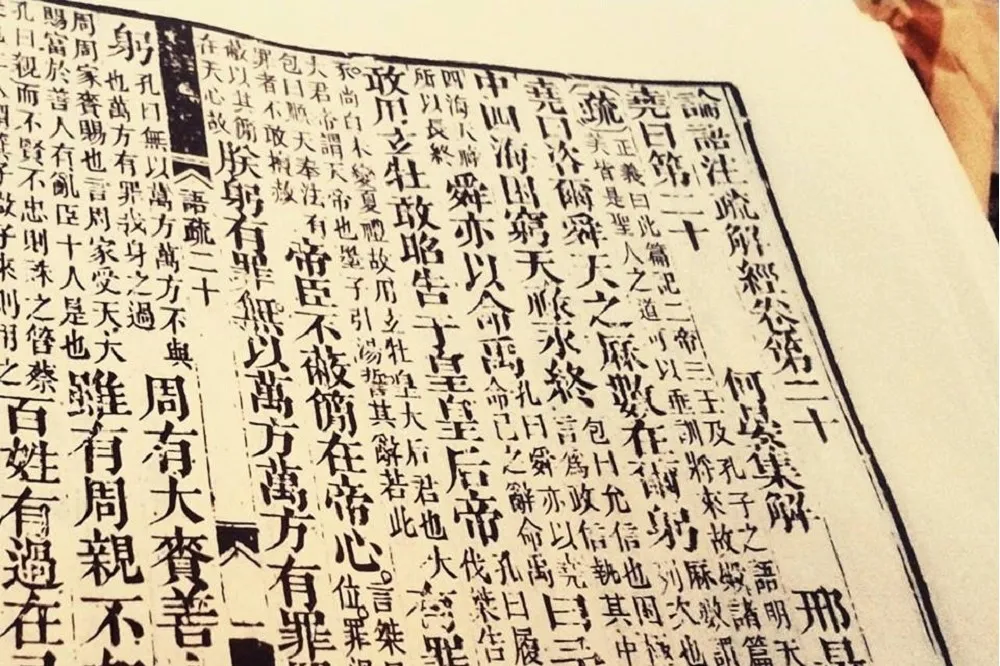 論語注疏解經卷第二十
堯曰第二十 何晏集解 邢
疏 正義曰此篇記二帝三王及孔子之語明天
美皆是聖人之道可以垂訓將來故殿諸篇
堯曰咨爾舜天之厤數在爾躬 厤數謂
列次也
中四海困窮天祿永終 包曰允信也困極
言爲政信執其中
四海天祿
所以長終
舜亦以命禹 孔曰舜亦以堯
命己之辭命禹
曰予
敢用玄牡敢昭告于皇皇后帝 孔曰履
伐桀告
天尚白未變夏禮故用玄牡皇大后君也大
大君帝謂天帝也墨子引湯誓其辭若此
有罪
包曰順天奉法有
罪者不敢擅赦
帝臣不蔽簡在帝心。 言桀
位罪
蔽以其簡
在天心故
朕躬有罪無以萬方萬方有罪
語疏二十
一
躬 孔曰無以萬方萬方不與
也萬方有罪我身之過
周有大賚善
周周家賚賜也言周家受天大
賜富於善人有亂臣十人是也
雖有周親不
孔曰親而不賢不忠則誅之管蔡
百姓有過在